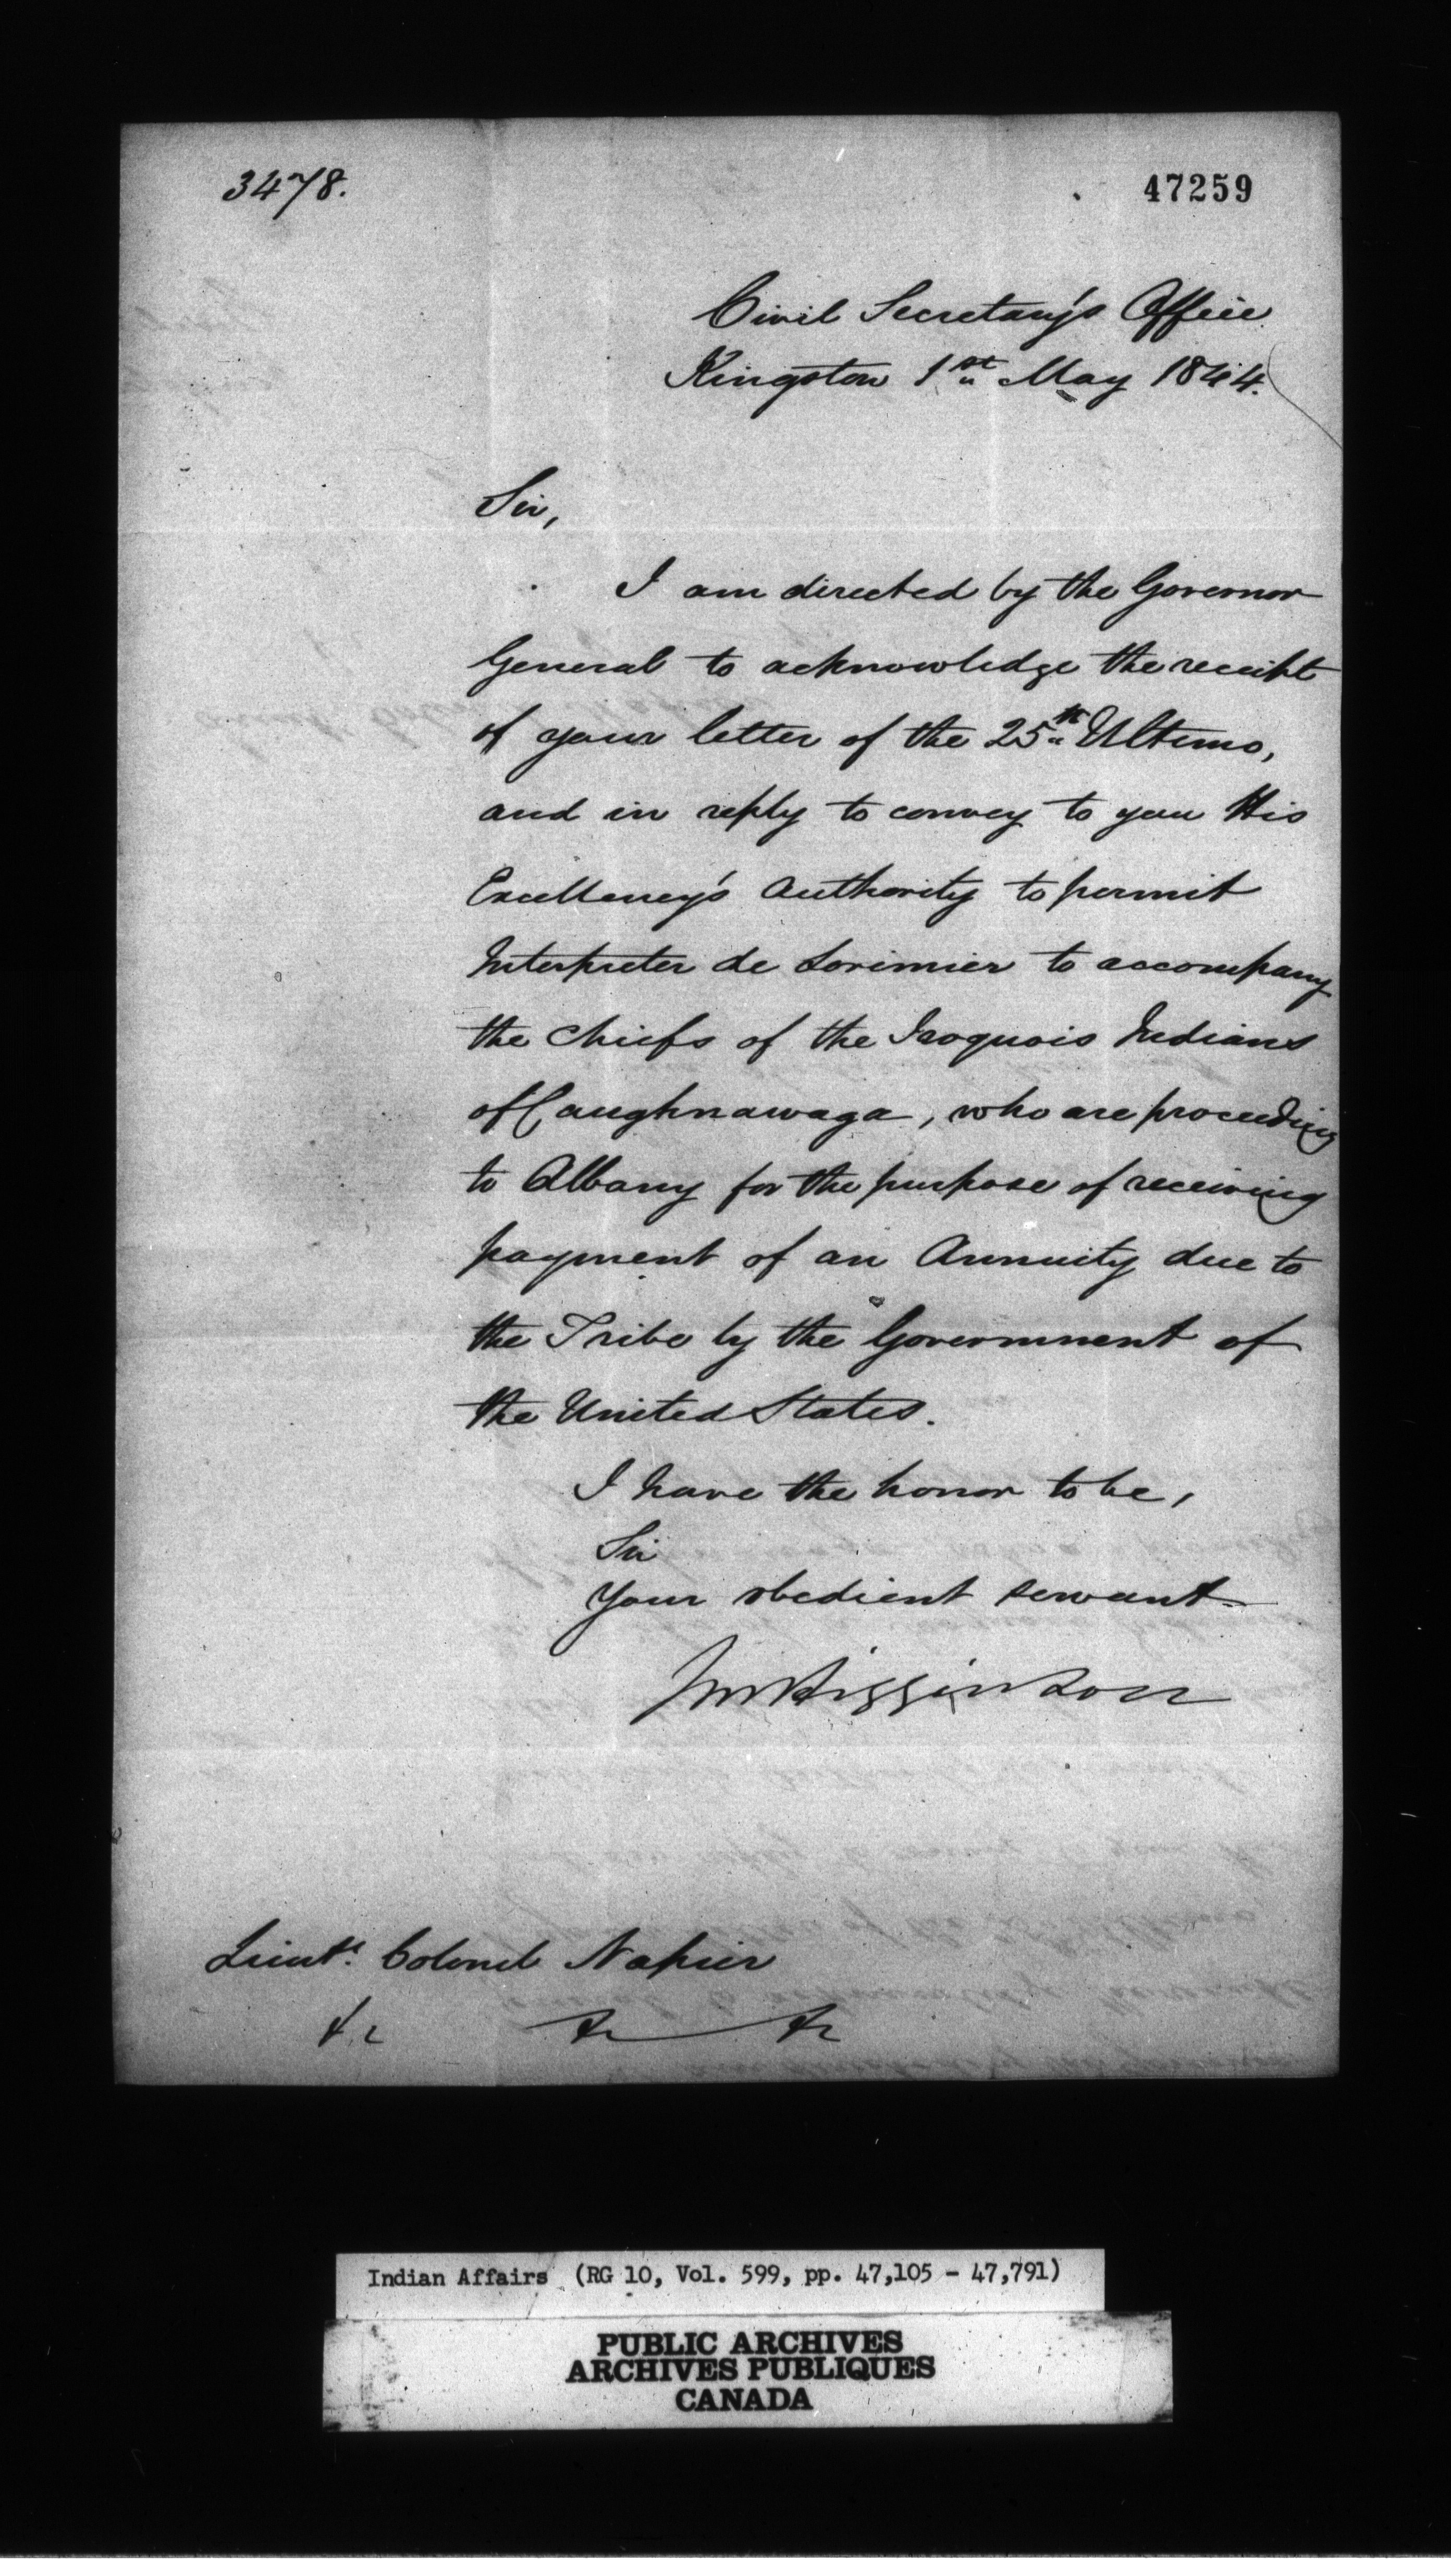 3478.
47259
Civil Secretary's Office
Kingston 1st May 1844.
Sir,
I am directed by the Governor
General to acknowledge the receipt
of your letter of the 25th Ultimo,
and in reply to convey to you His
Excellency's Authority to permit
Interpreter de Lorimier to accompany
the Chiefs of the Iroquois Indians
of Caughnawaga, who are proceeding
to Albany for the purpose of receiving
payment of an Annuity due to
the Tribe by the Government of
the United States.
I have the honor to be,
Sir
Your obedient servant
JM Higginson
Lieut. Colonel Napier
&c &c &c
Indian Affairs (RG 10, Vol. 599, pp. 47,105 - 47,791)
PUBLIC ARCHIVES
ARCHIVES PUBLIQUES
CANADA